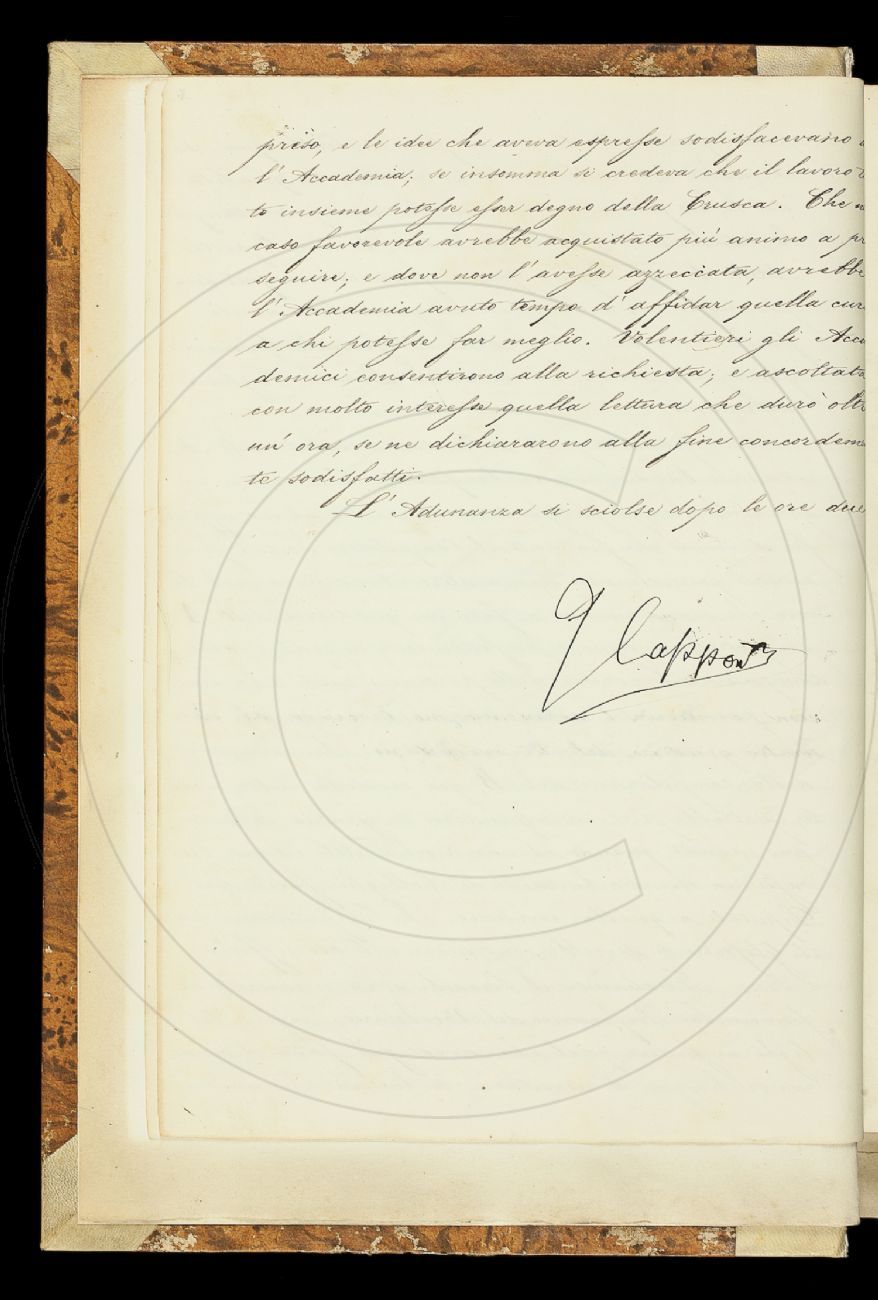 preso, e le idee che aveva espresse sodisfacevano
l'Accademia; se insomma si credeva che il lavoro
to insieme potesse esser degno della Crusca. Che
caso favorevole avrebbe acquistato più animo a pr
seguire; e dove non l'avesse azzeccata, avrebbe
l'Accademia avuto tempo d'affidar quella cur
a chi potesse far meglio. Volentieri gli Acca
demici consentirono alla richiesta; e ascoltata
con molto interesse quella lettura che durò olt
un' ora, se ne dichiararono alla fine concordem
te sodisfatti.
L'Adunanza si sciolse dopo le ore due
G Capponi